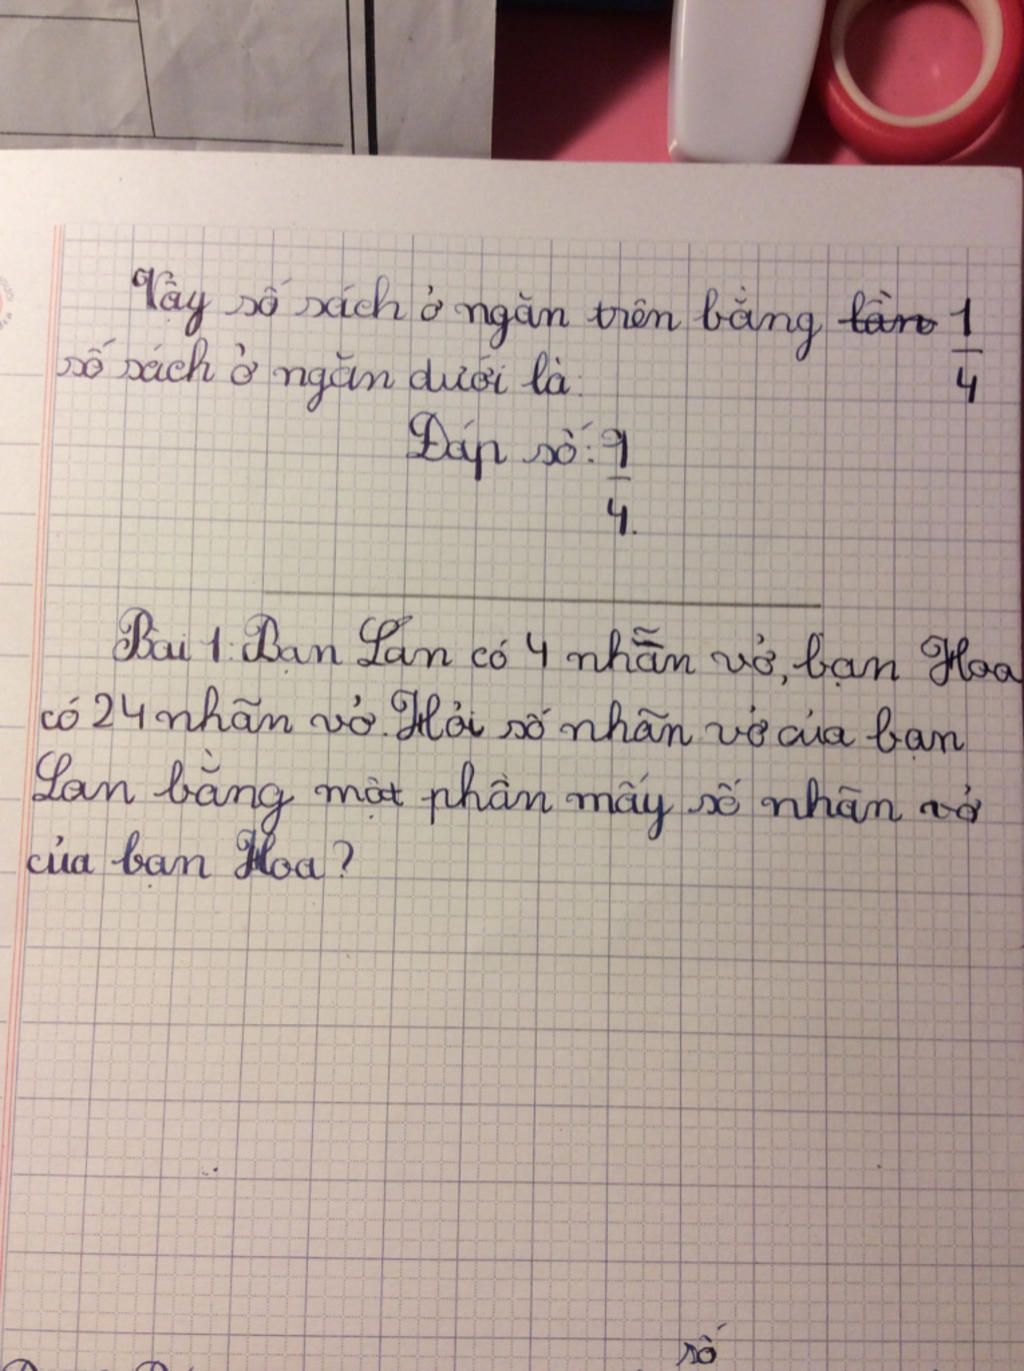 Vậy số sách ở ngăn trên bằng lần 1/4
số sách ở ngăn dưới là:
Đáp số: 1/4.
Bài 1: Bạn Lan có 4 nhãn vở, bạn Hoa
có 24 nhãn vở. Hỏi số nhãn vở của bạn
Lan bằng một phần mấy số nhãn vở
của bạn Hoa?
số